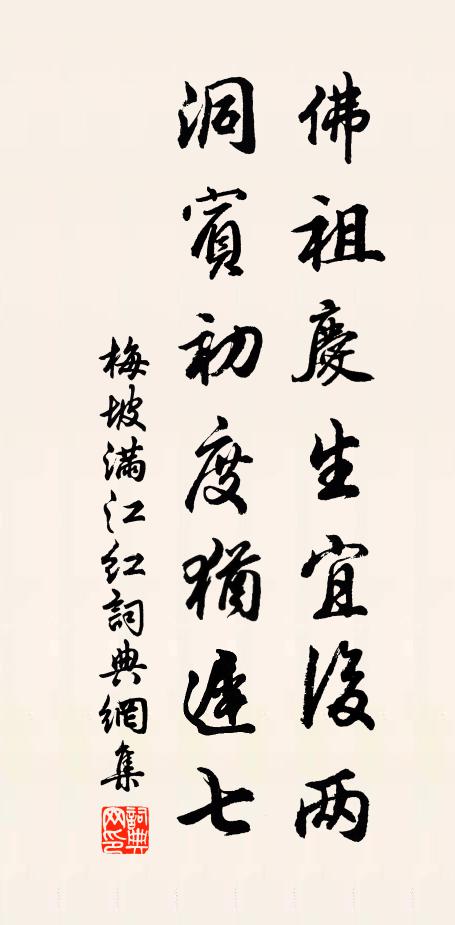 佛祖慶生宜後两
洞賓初度猶遲七
梅坡满江红詞典網集
詞典网印